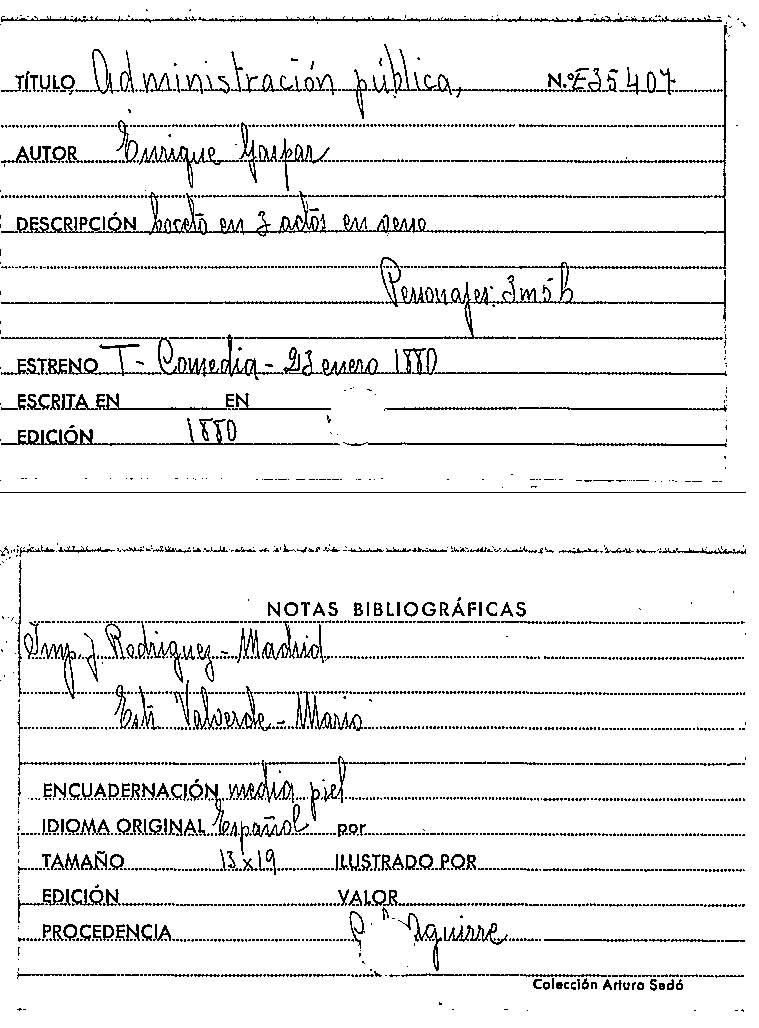 TÍTULO Administración pública, N.º E35407
AUTOR Enrique Gaspar
DESCRIPCIÓN boceto en 3 actos en verso
Personajes: 3m5h
ESTRENO T- Comedia - 23 enero 1880
ESCRITA EN EN
EDICIÓN 1880
NOTAS BIBLIOGRÁFICAS
Imp. J Rodriguez - Madrid
Est: Valverde - Mario
ENCUADERNACIÓN media piel
IDIOMA ORIGINAL Español por
TAMAÑO 13x19 ILUSTRADO POR
EDICIÓN VALOR
PROCEDENCIA Aguirre
Colección Arturo Sedó